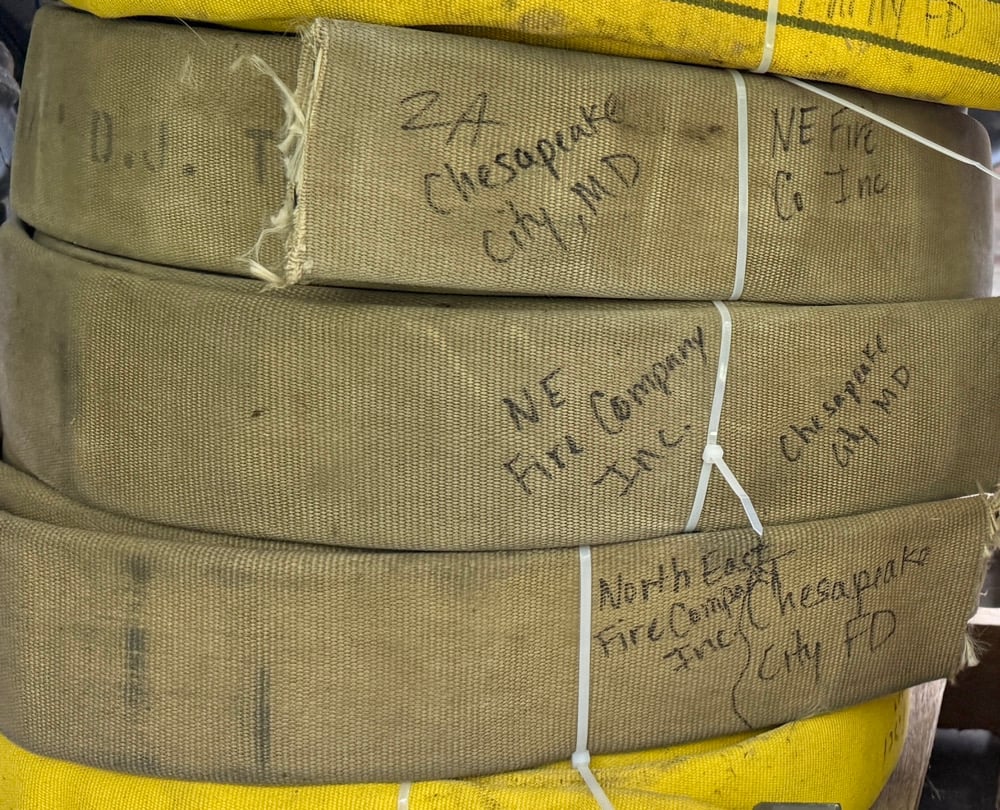 FD
D.J. T
2A
Chesapeake
City, MD
NE Fire
Co Inc
NE
Fire Company
Inc.
Chesapeake
City
MD
North East
Fire Company
Inc
Chesapeake
City FD